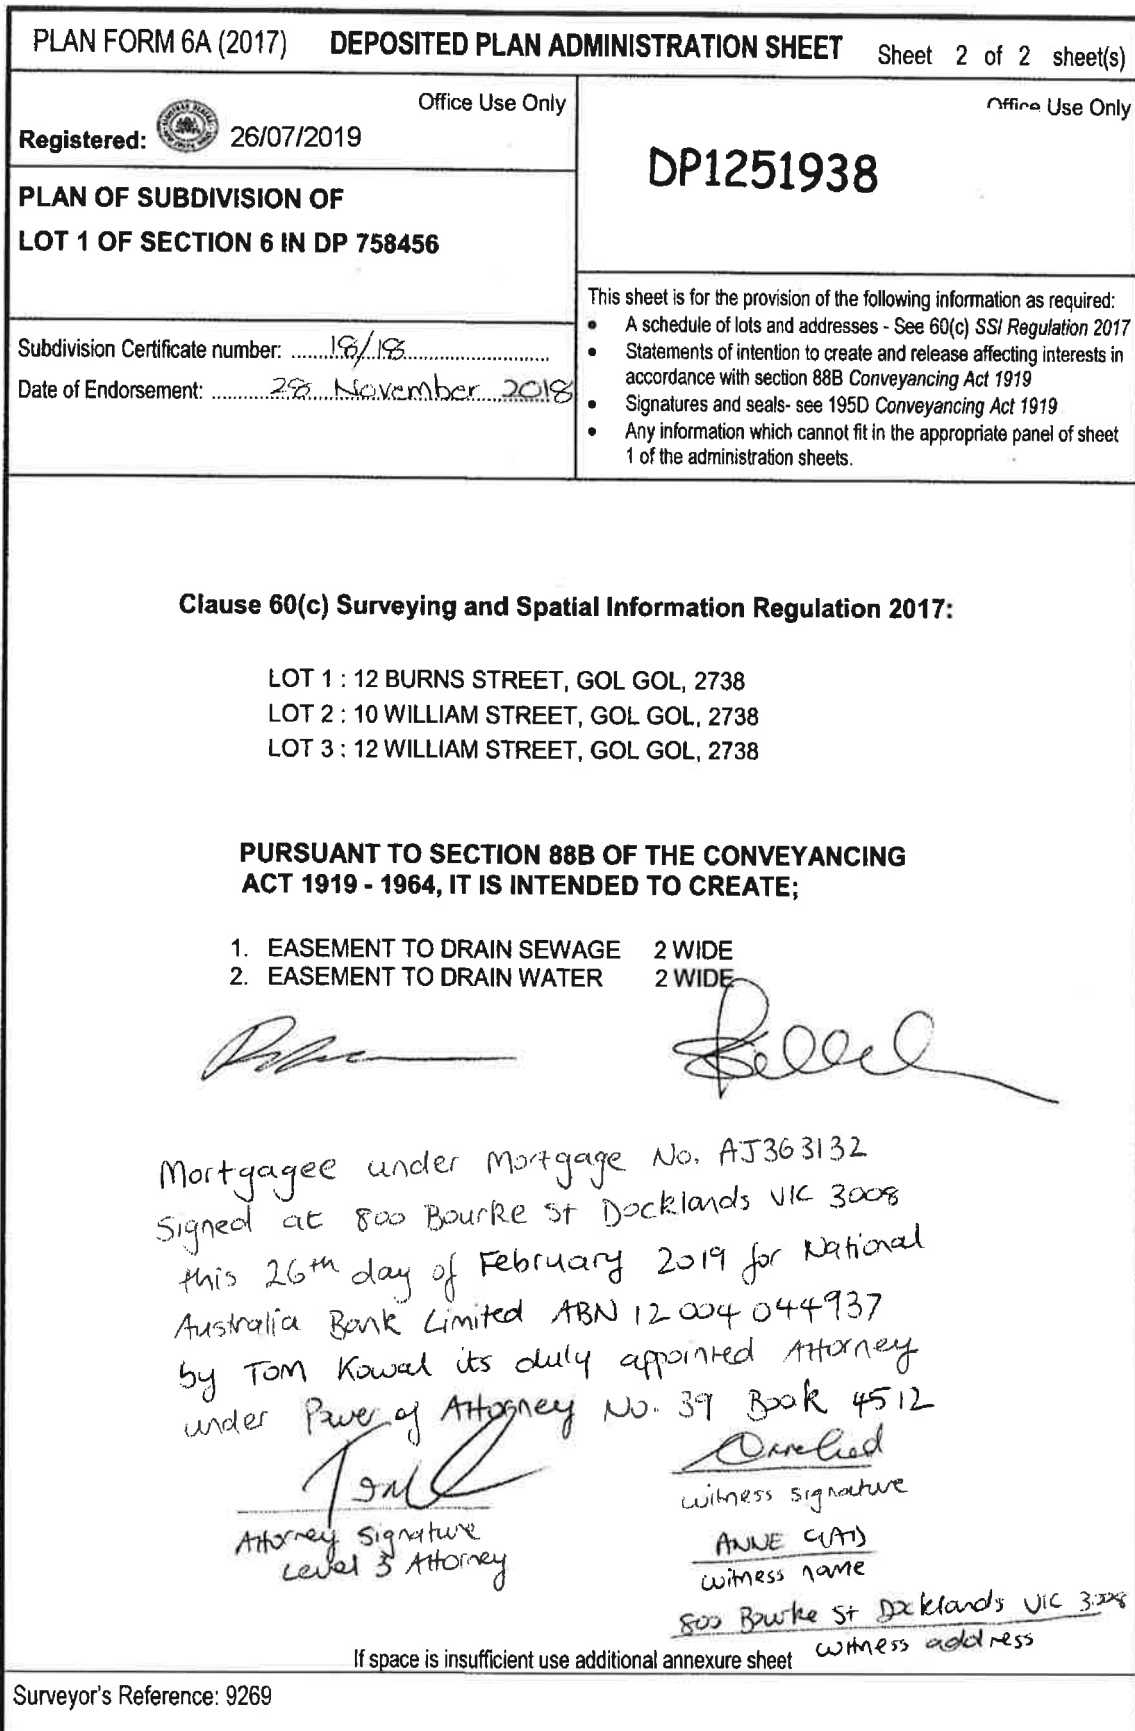 PLAN FORM 6A (2017) DEPOSITED PLAN ADMINISTRATION SHEET Sheet 2 of 2 sheet(s)
Office Use Only
Registered: 26/07/2019
Office Use Only
DP1251938
PLAN OF SUBDIVISION OF
LOT 1 OF SECTION 6 IN DP 758456
Subdivision Certificate number: 18/18
Date of Endorsement: 28 November 2018
This sheet is for the provision of the following information as required:
• A schedule of lots and addresses - See 60(c) SSI Regulation 2017
• Statements of intention to create and release affecting interests in
accordance with section 88B Conveyancing Act 1919
• Signatures and seals- see 195D Conveyancing Act 1919
• Any information which cannot fit in the appropriate panel of sheet
1 of the administration sheets.
Clause 60(c) Surveying and Spatial Information Regulation 2017:
LOT 1 : 12 BURNS STREET, GOL GOL, 2738
LOT 2 : 10 WILLIAM STREET, GOL GOL, 2738
LOT 3 : 12 WILLIAM STREET, GOL GOL, 2738
PURSUANT TO SECTION 88B OF THE CONVEYANCING
ACT 1919 - 1964, IT IS INTENDED TO CREATE;
1. EASEMENT TO DRAIN SEWAGE 2 WIDE
2. EASEMENT TO DRAIN WATER 2 WIDE
Mortgagee under Mortgage No. AJ363132
Signed at 800 Bourke St Docklands VIC 3008
this 26th day of February 2019 for National
Australia Bank Limited ABN 12 004 044937
by Tom Kowal its duly appointed Attorney
under Power of Attorney No. 39 Book 4512
Attorney Signature
Level 3 Attorney
witness signature
ANNE
witness name
800 Bourke St Docklands VIC 3008
witness address
If space is insufficient use additional annexure sheet
Surveyor's Reference: 9269